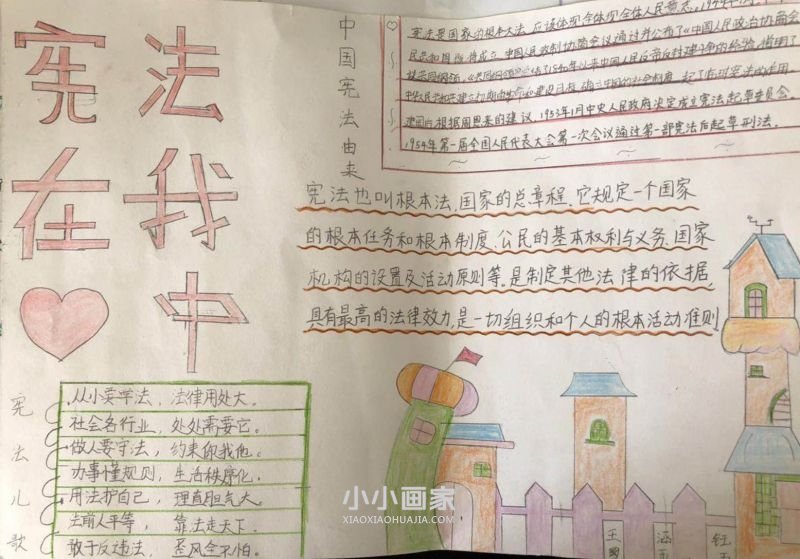 宪法
在我
中
中国宪法由来
宪法是国家的根本大法,应该体现全体人民意志。1949年
建国后根据周恩来的建议,1953年1月中央人民政府决定成立宪法起草委员会。
1954年第一届全国人民代表大会第一次会议通过第一部宪法后起草刑法。
宪法也叫根本法,国家的总章程,它规定一个国家
的根本任务和根本制度、公民的基本权利与义务、国家
机构的设置及活动原则等。是制定其他法律的依据,
具有最高的法律效力,是一切组织和个人的根本活动准则
宪法儿歌
从小要学法,法律用处大。
社会各行业,处处需要它。
做人要守法,约束你我他。
办事懂规则,生活秩序化。
用法护自己,理直胆气大。
法前人平等,靠法走天下。
敢于反违法,恶风全不怕。
小小画家
XIAOXIAOHUAJIA.COM
王